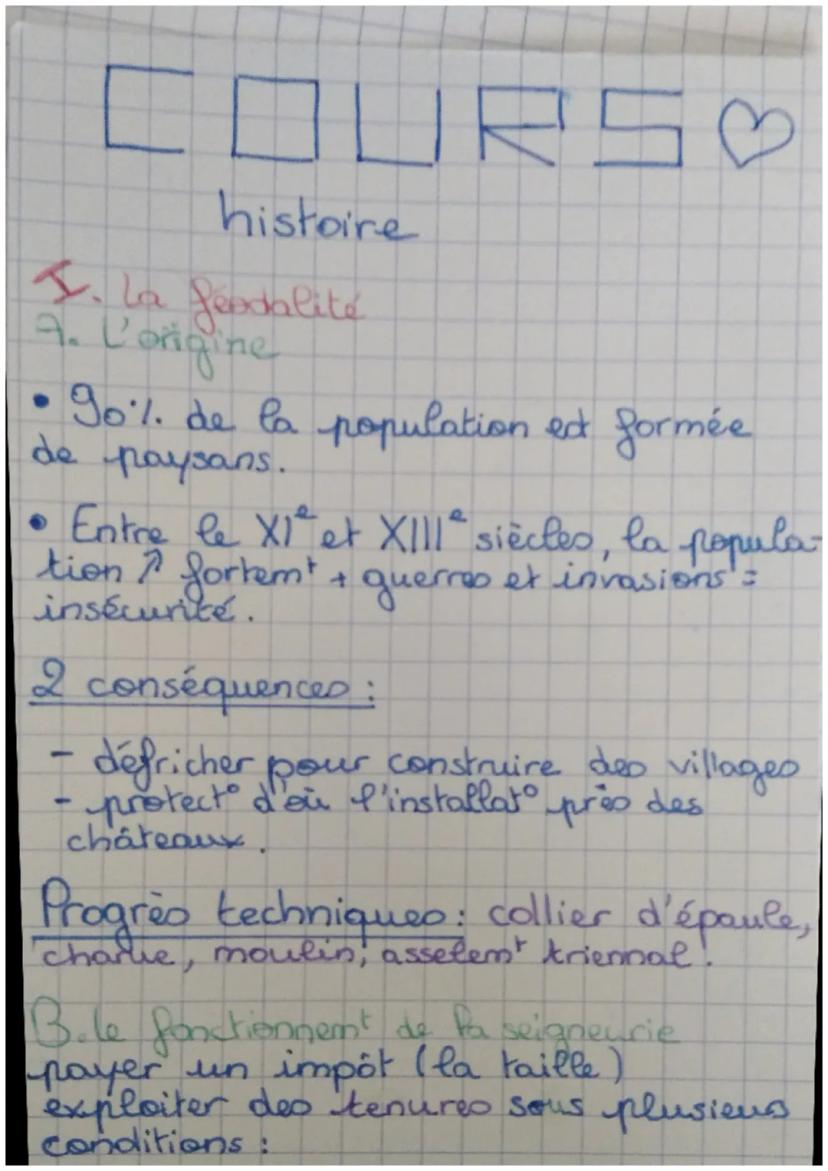 COURS ♡
histoire
I. La féodalité
A. L'origine
• 90% de la population est formée
de paysans.
• Entre le XIe et XIIIe siècles, la popula-
tion ↗ fortemt + guerres et invasions =
insécurité.
2 conséquences :
- défricher pour construire des villages
- protect° d'où l'installat° près des
châteaux.
Progrès techniques : collier d'épaule,
charrue, moulin, assolemt triennal.
B. le fonctionnemt de la seigneurie
payer un impôt (la taille)
exploiter des tenures sous plusieurs
conditions :